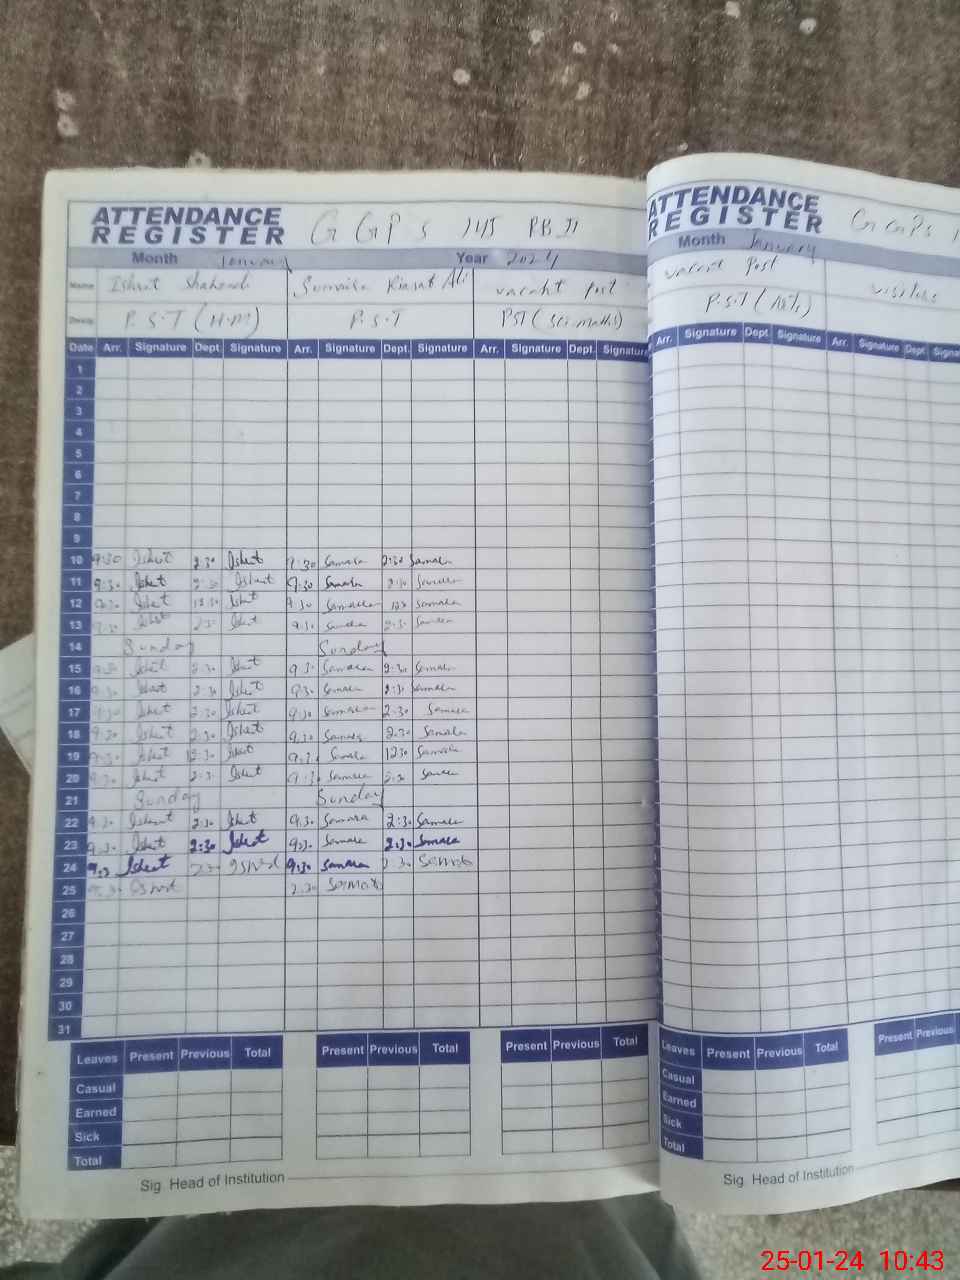 ATTENDANCE
REGISTER
G G P S
Month January Year 2024
Name Ishrat Kiasat Ali vacant post
Desig: P.S.T (H.M) P.S.T PST (Sci-maths)
Date Arr. Signature Dept. Signature Arr. Signature Dept. Signature Arr. Signature Dept. Signature
1
2
3
4
5
6
7
8
9
10 9:30 Ishrat 2:30 Ishrat 9:30 Samara 2:30 Samara
11 9:30 Ishrat 2:30 Ishrat 9:30 Samara 2:30 Samara
12 9:30 Ishrat 12:30 Ishrat 9:30 Samara Samara
13 9:30 Ishrat 2:30 Ishrat 9:30 Samara 2:30 Samara
14 Sunday Sunday
15 9:30 Ishrat 2:30 Ishrat 9:30 Samara 2:30 Samara
16 9:30 Ishrat 2:30 Ishrat 9:30 Samara 2:30 Samara
17 9:30 Ishrat 2:30 Ishrat 9:30 Samara 2:30 Samara
18 9:30 Ishrat 2:30 Ishrat 9:30 Samara 2:30 Samara
19 9:30 Ishrat 12:30 Ishrat 9:30 Samara 1230 Samara
20 9:30 Ishrat 2:30 Ishrat 9:30 Samara 2:30 Samara
21 Sunday Sunday
22 9:30 Ishrat 2:30 Ishrat 9:30 Samara 2:30 Samara
23 9:30 Ishrat 2:30 Ishrat 9:30 Samara 2:30 Samara
24 Ishrat 2:30 9:30 Samara 2:30
25 9:30
26
27
28
29
30
31
Leaves Present Previous Total Present Previous Total Present Previous Total
Casual
Earned
Sick
Total
Sig. Head of Institution
ATTENDANCE
REGISTER
G G P S
Month January
vacant post visitors
P.S.T (Arts)
Arr. Signature Dept. Signature Arr. Signature Dept.
Leaves Present Previous Total Present Previous
Casual
Earned
Sick
Total
Sig. Head of Institution
25-01-24 10:43